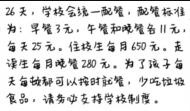 26天，学校会统一配餐，配餐标准
为：早餐3元，午餐和晚餐各11元，
每天25元。住校生每月650元。走
读生每月晚餐280元。为了孩子每
天每顿都可以按时就餐，少吃垃圾
食品，请务必支持学校制度。